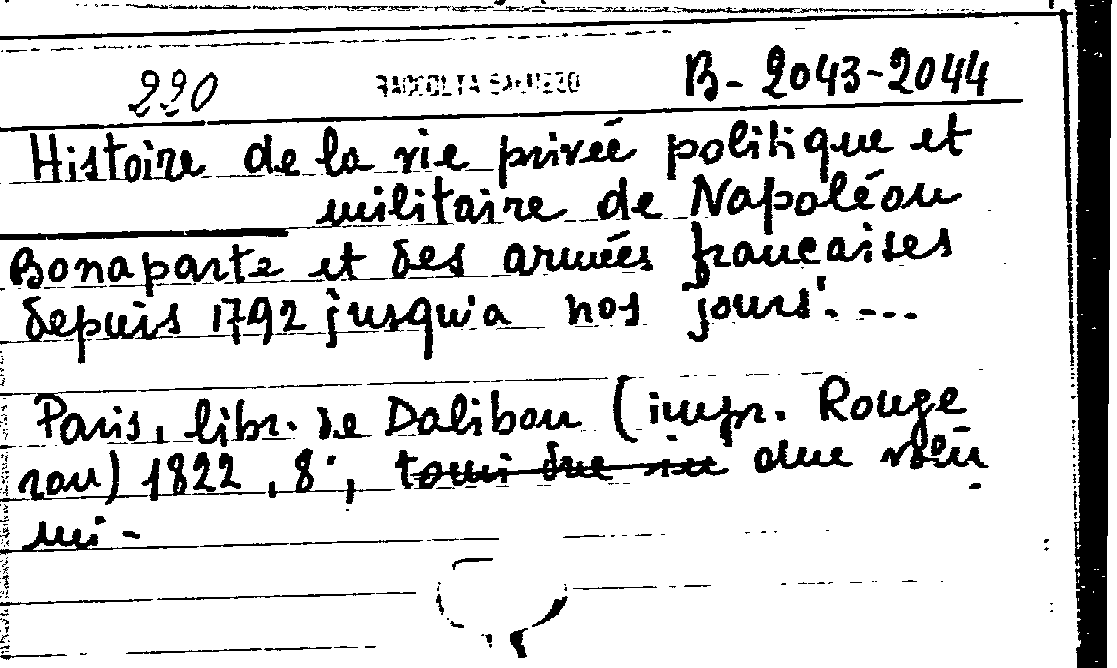 220 RACCOLTA B-2043-2044
Histoire de la vie privée politique et
militaire de Napoléon
Bonaparte et des armées françaises
depuis 1792 jusqu'a nos jours....
Paris, libr. de Dalibon (impr. Rouge
ron) 1822, 8°, due volu
mi-